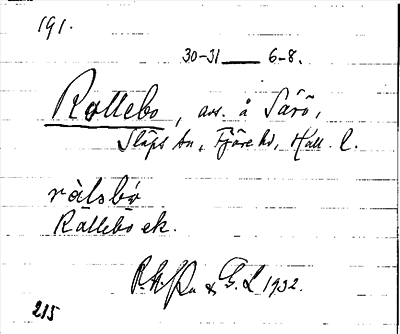 191.
30-31 — 6-8.
Rallebo, avs. å Särö,
Släps sn, Fjäre hd, Hall. l.
ràlsbo
Rallebo ek.
& G. L 1932.
215